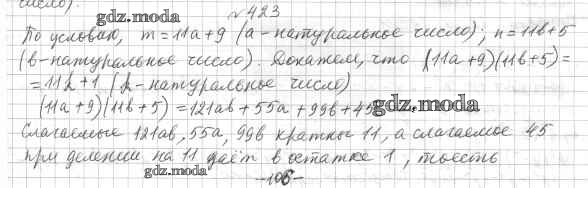 число).
gdz.moda
№423
По условию, m=11a+9 (a-натуральное число); n=11b+5
(b-натуральное число). Докажем, что (11a+9)(11b+5)=
=11k+1 (k-натуральное число)
(11a+9)(11b+5)=121ab+55a+99b+45 gdz.moda
Слагаемые 121ab, 55a, 99b кратные 11, а слагаемое 45
при делении на 11 даёт в остатке 1, тоесть
gdz.moda
-106-